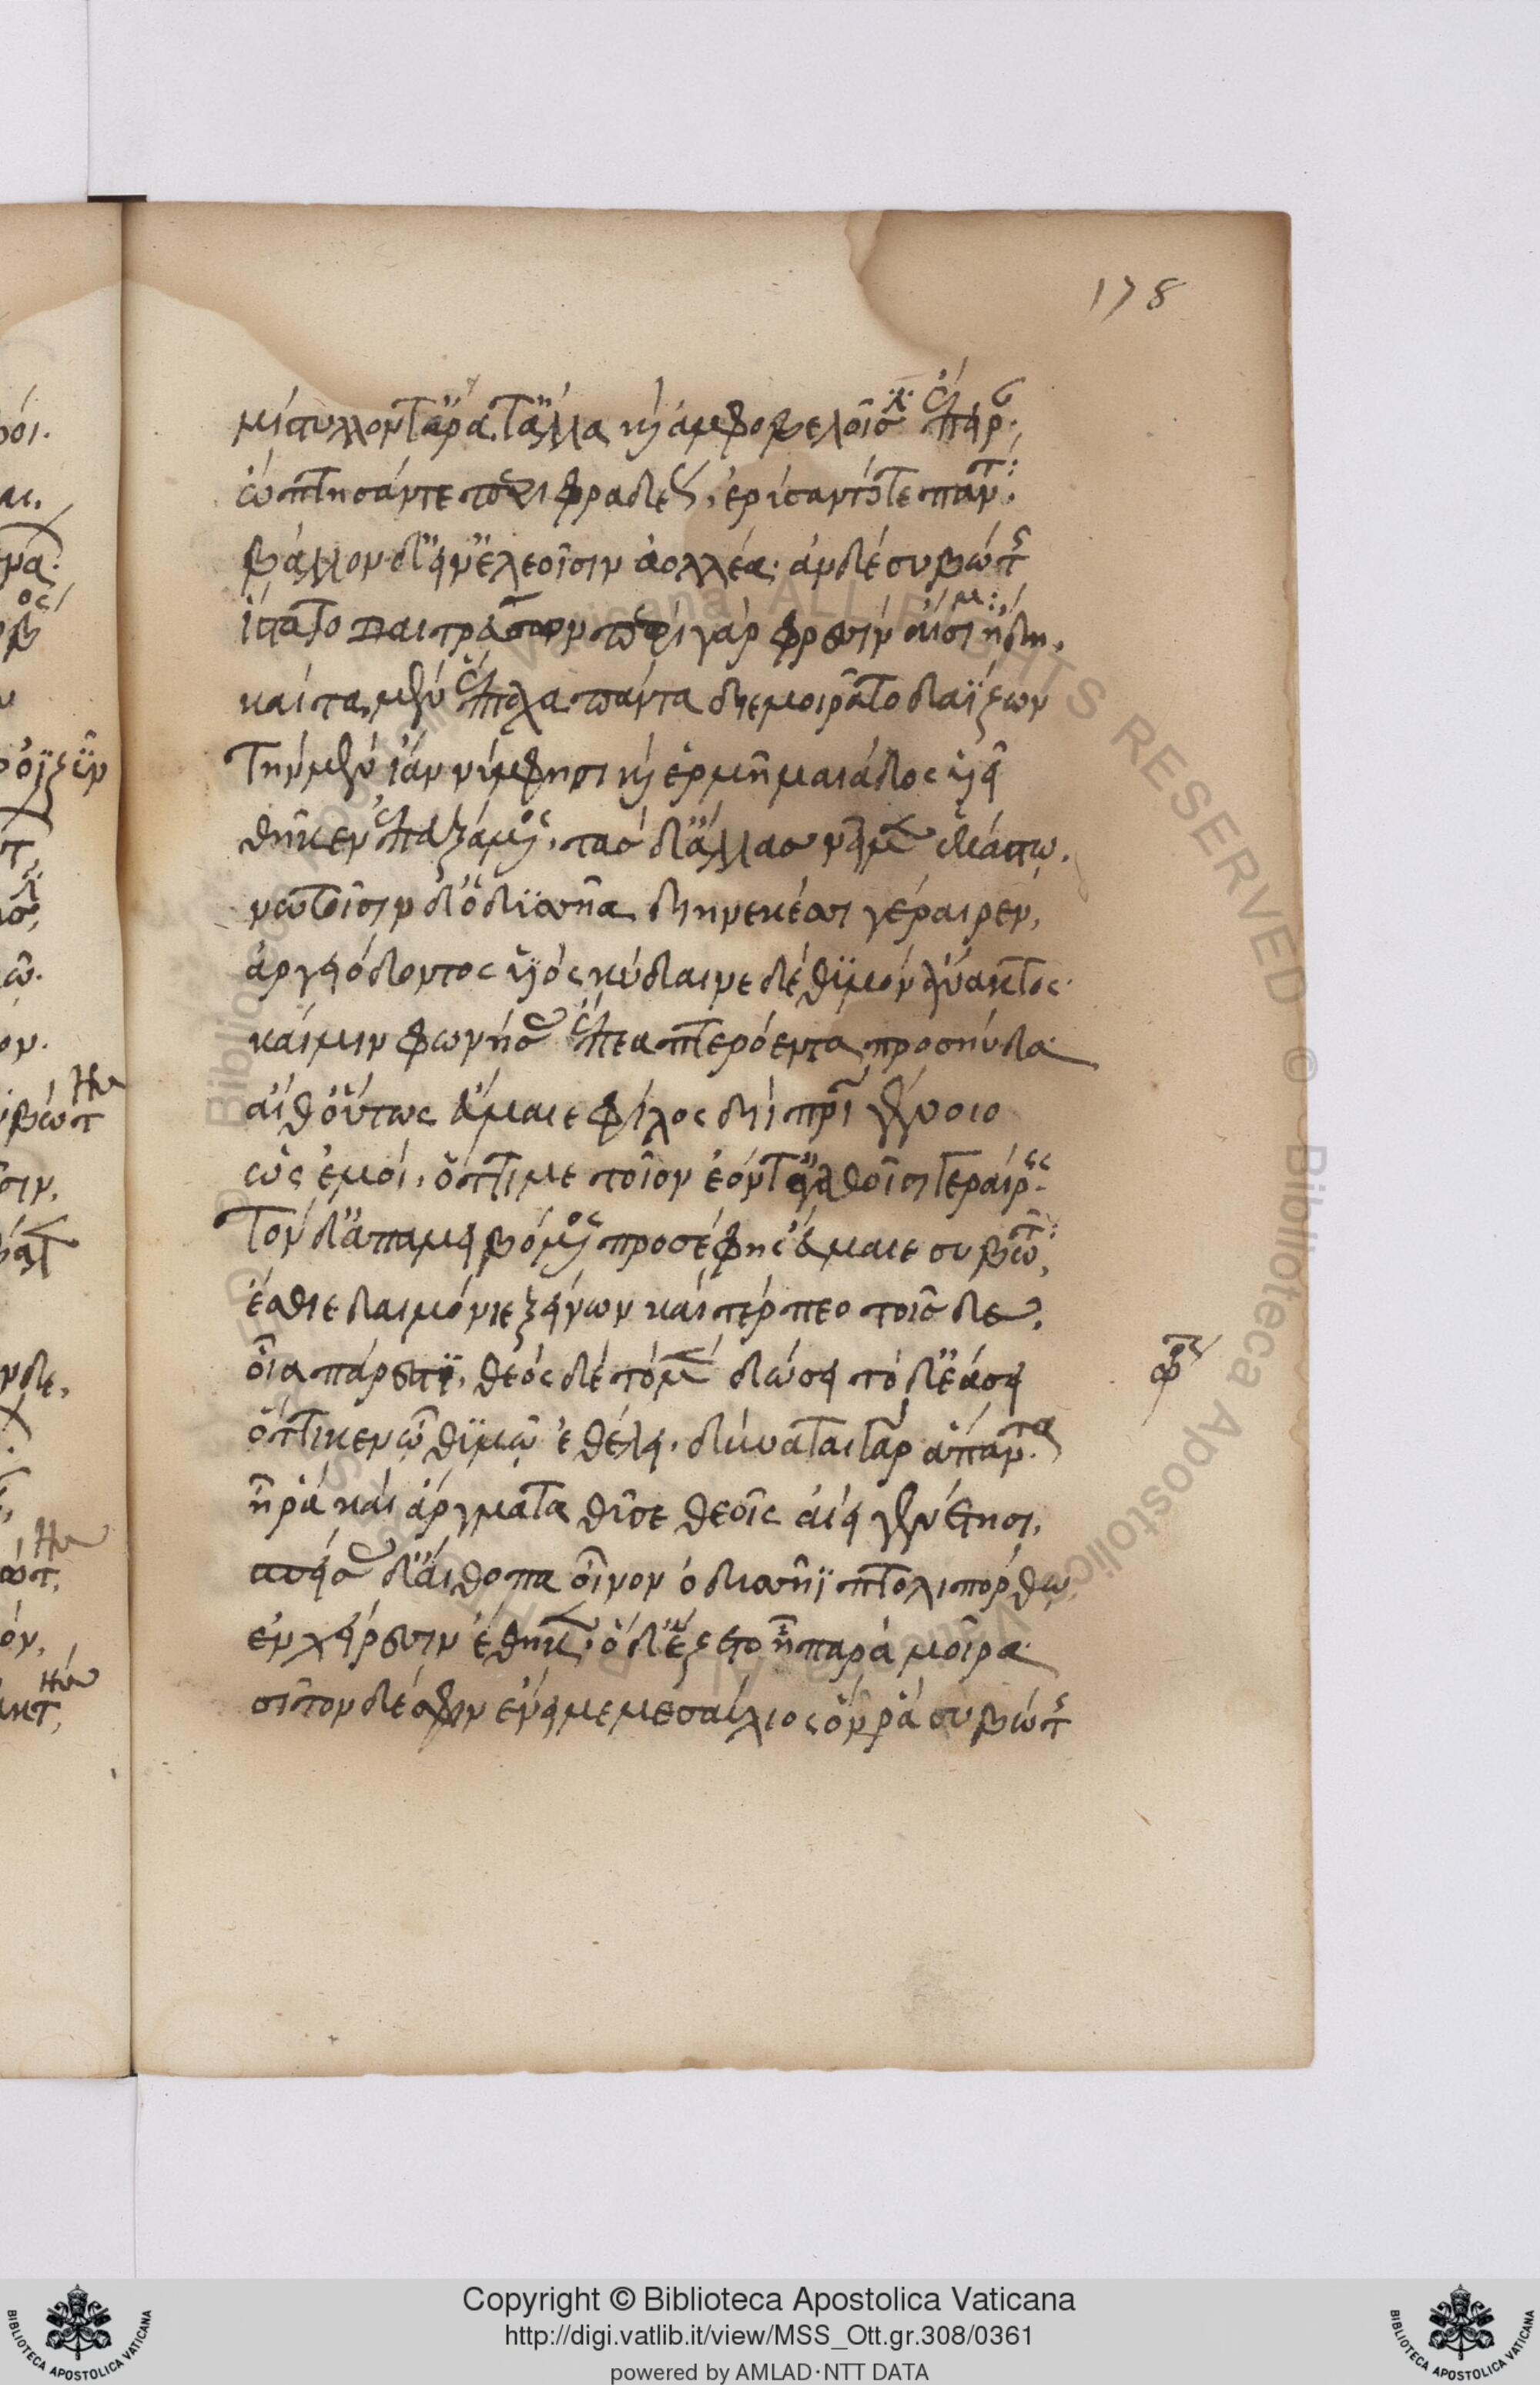 178
μίστυλλόν τ' ἄρα τἄλλα καὶ ἀμφ' ὀβελοῖσιν ἔπειραν.
ὤπτησάν τε περιφραδέως, ἐρύσαντό τε πάντα.
βάλλον δ' εἰν ἐλεοῖσιν ἀολλέα· ἂν δὲ συβώτης
ἵστατο δαιτρεύσων· περὶ γὰρ φρεσὶν αἴσιμα ἤδη.
καὶ τὰ μὲν ἕπταχα πάντα διεμοιρᾶτο δαΐζων
τὴν μὲν ἴαν νύμφησι καὶ ἑρμῆ μαιάδος υἱεῖ
θῆκεν ἐπευξάμενος. τὰς δ' ἄλλας νεῖμεν ἑκάστω.
νώτοισιν δ' ὀδυσῆα διηνεκέεσσι γέραιρεν,
ἀργειόδοντος ὑός, κύδαινε δὲ θυμὸν ἄνακτος·
καί μιν φωνήσας ἔπεα πτερόεντα προσηύδα
αἴθ' οὕτως εὔμαιε φίλος διὶ πατρὶ γένοιο
ὡς ἐμοί. ὅττί με τοῖον ἐόντ' ἀγαθοῖσι γεραίρεις.
τὸν δ' ἀπαμειβόμενος προσέφης εὔμαιε συβῶτα,
ἔσθιε δαιμόνιε ξείνων καὶ τέρπεο τοῖσδε.
οἷα πάρεστι. θεὸς δὲ τὸ μὲν δώσει τὸ δ' ἐάσει
ὅττι κεν ᾧ θυμῷ ἐθέλει. δύναται γὰρ ἅπαντα
ἦ ῥα καὶ ἄργματα θῦσε θεοῖς αἰειγενέτησι,
σπείσας δ' αἴθοπα οἶνον ὀδυσῆϊ πτολιπόρθω
ἐν χείρεσσιν ἔθηκεν. ὁ δ' ἕζετο ᾗ παρὰ μοίρα
σῖτον δέ σφιν ἔνειμε μεσαύλιος ὅν ῥα συβώτης
Copyright © Biblioteca Apostolica Vaticana
http://digi.vatlib.it/view/MSS_Ott.gr.308/0361
powered by AMLAD·NTT DATA